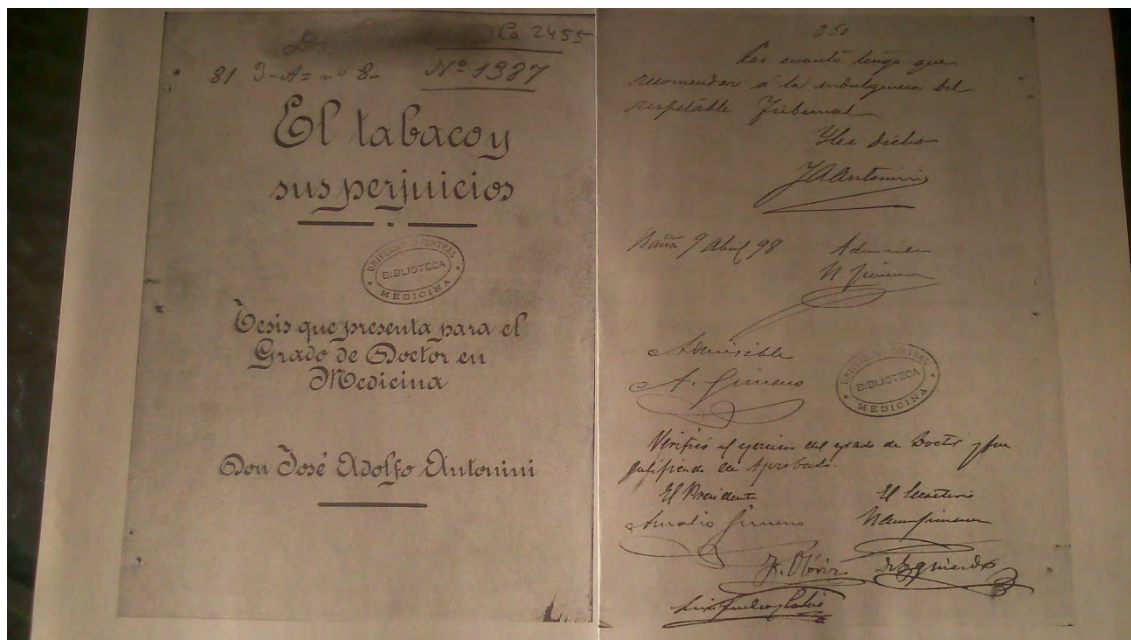 Ca 2455
81 3-A= nº 8- Nº 1387
El tabaco y
sus perjuicios
UNIVERSIDAD CENTRAL
BIBLIOTECA
MEDICINA
Tesis que presenta para el
Grado de Doctor en
Medicina
Don José Adolfo Antonini
Es cuanto tengo que
recomendar á la indulgencia del
respetable Tribunal
He dicho
JAAntonini
9 Abril 98
Admisible
A. Gimeno
UNIVERSIDAD CENTRAL
BIBLIOTECA
MEDICINA
Verificó el ejercicio del grado de Doctor y fue
calificado de Aprobado.
El Presidente El Secretario
Amalio Gimeno
F. Olóriz